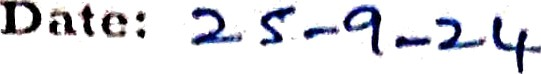 Date: 25-9-24